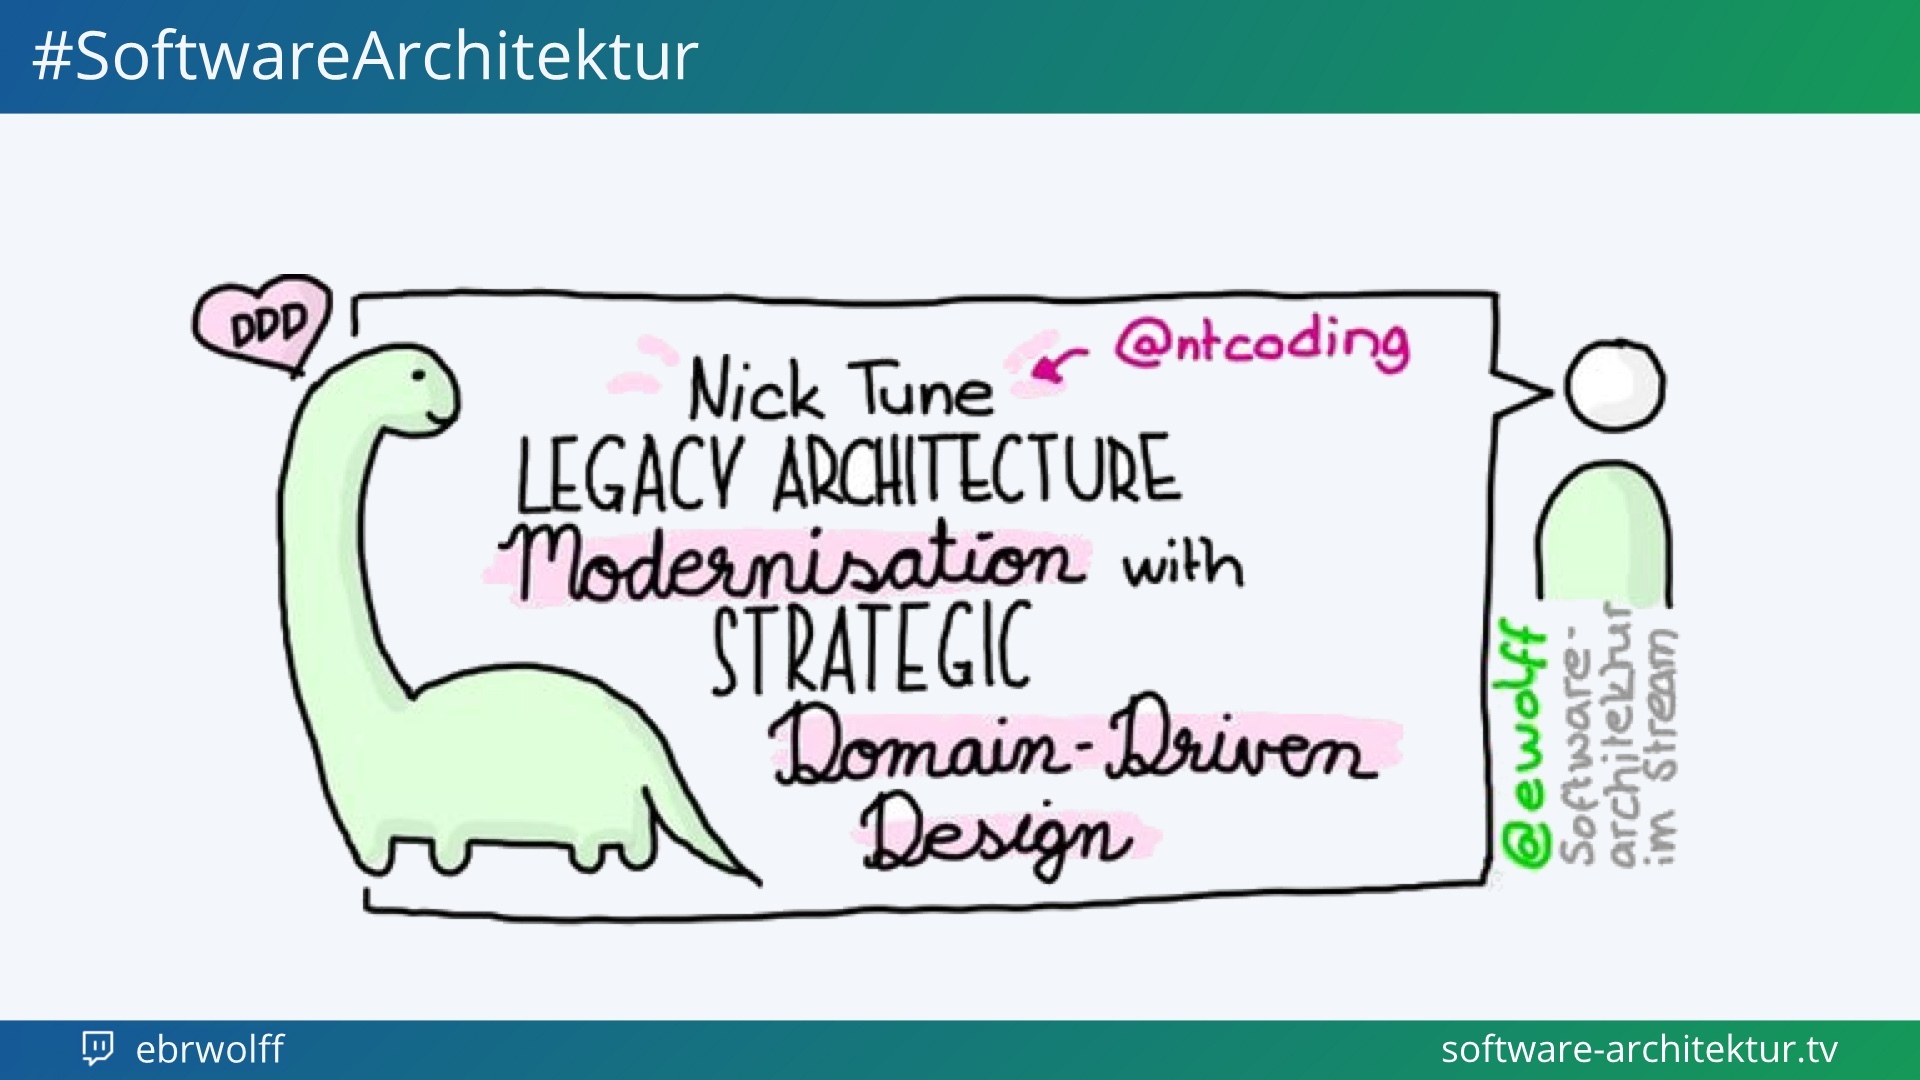 #SoftwareArchitektur
DDD
@ntcoding
Nick Tune
LEGACY ARCHITECTURE
Modernisation with
STRATEGIC
Domain-Driven
Design
@ewolff
Software-
architektur
im Stream
ebrwolff
software-architektur.tv